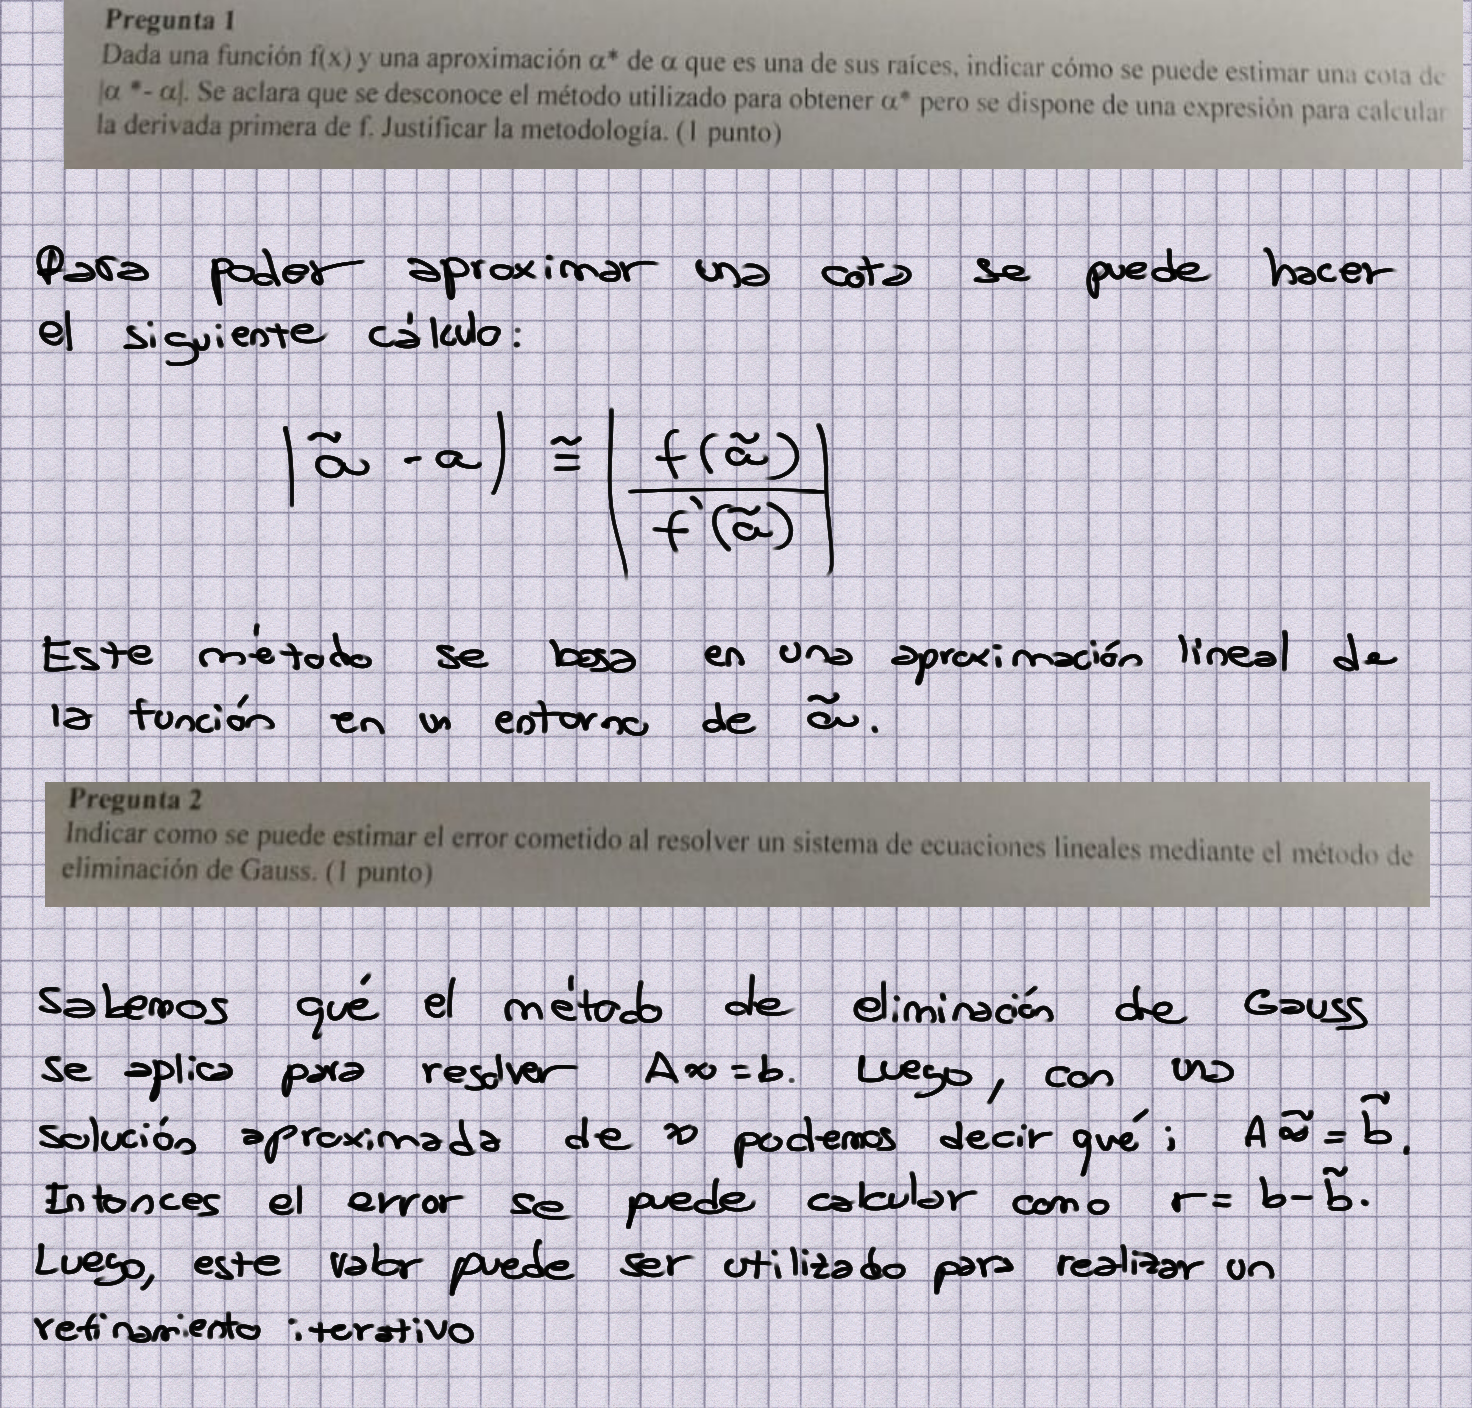 Pregunta 1
Dada una función f(x) y una aproximación α* de α que es una de sus raíces, indicar cómo se puede estimar una cota de
|α *- α|. Se aclara que se desconoce el método utilizado para obtener α* pero se dispone de una expresión para calcular
la derivada primera de f. Justificar la metodología. (1 punto)
Para poder aproximar una cota se puede hacer
el siguiente cálculo:
|α̃ - α| ≅ |f(α̃) / f'(α̃)|
Este método se basa en una aproximación lineal de
la función en un entorno de α̃.
Pregunta 2
Indicar como se puede estimar el error cometido al resolver un sistema de ecuaciones lineales mediante el método de
eliminación de Gauss. (1 punto)
Sabemos qué el método de eliminación de Gauss
se aplica para resolver Ax = b. Luego, con una
solución aproximada de x podemos decir qué: Ax̃ = b̃.
Intonces el error se puede calcular como r = b - b̃.
Luego, este valor puede ser utilizado para realizar un
refinamiento iterativo